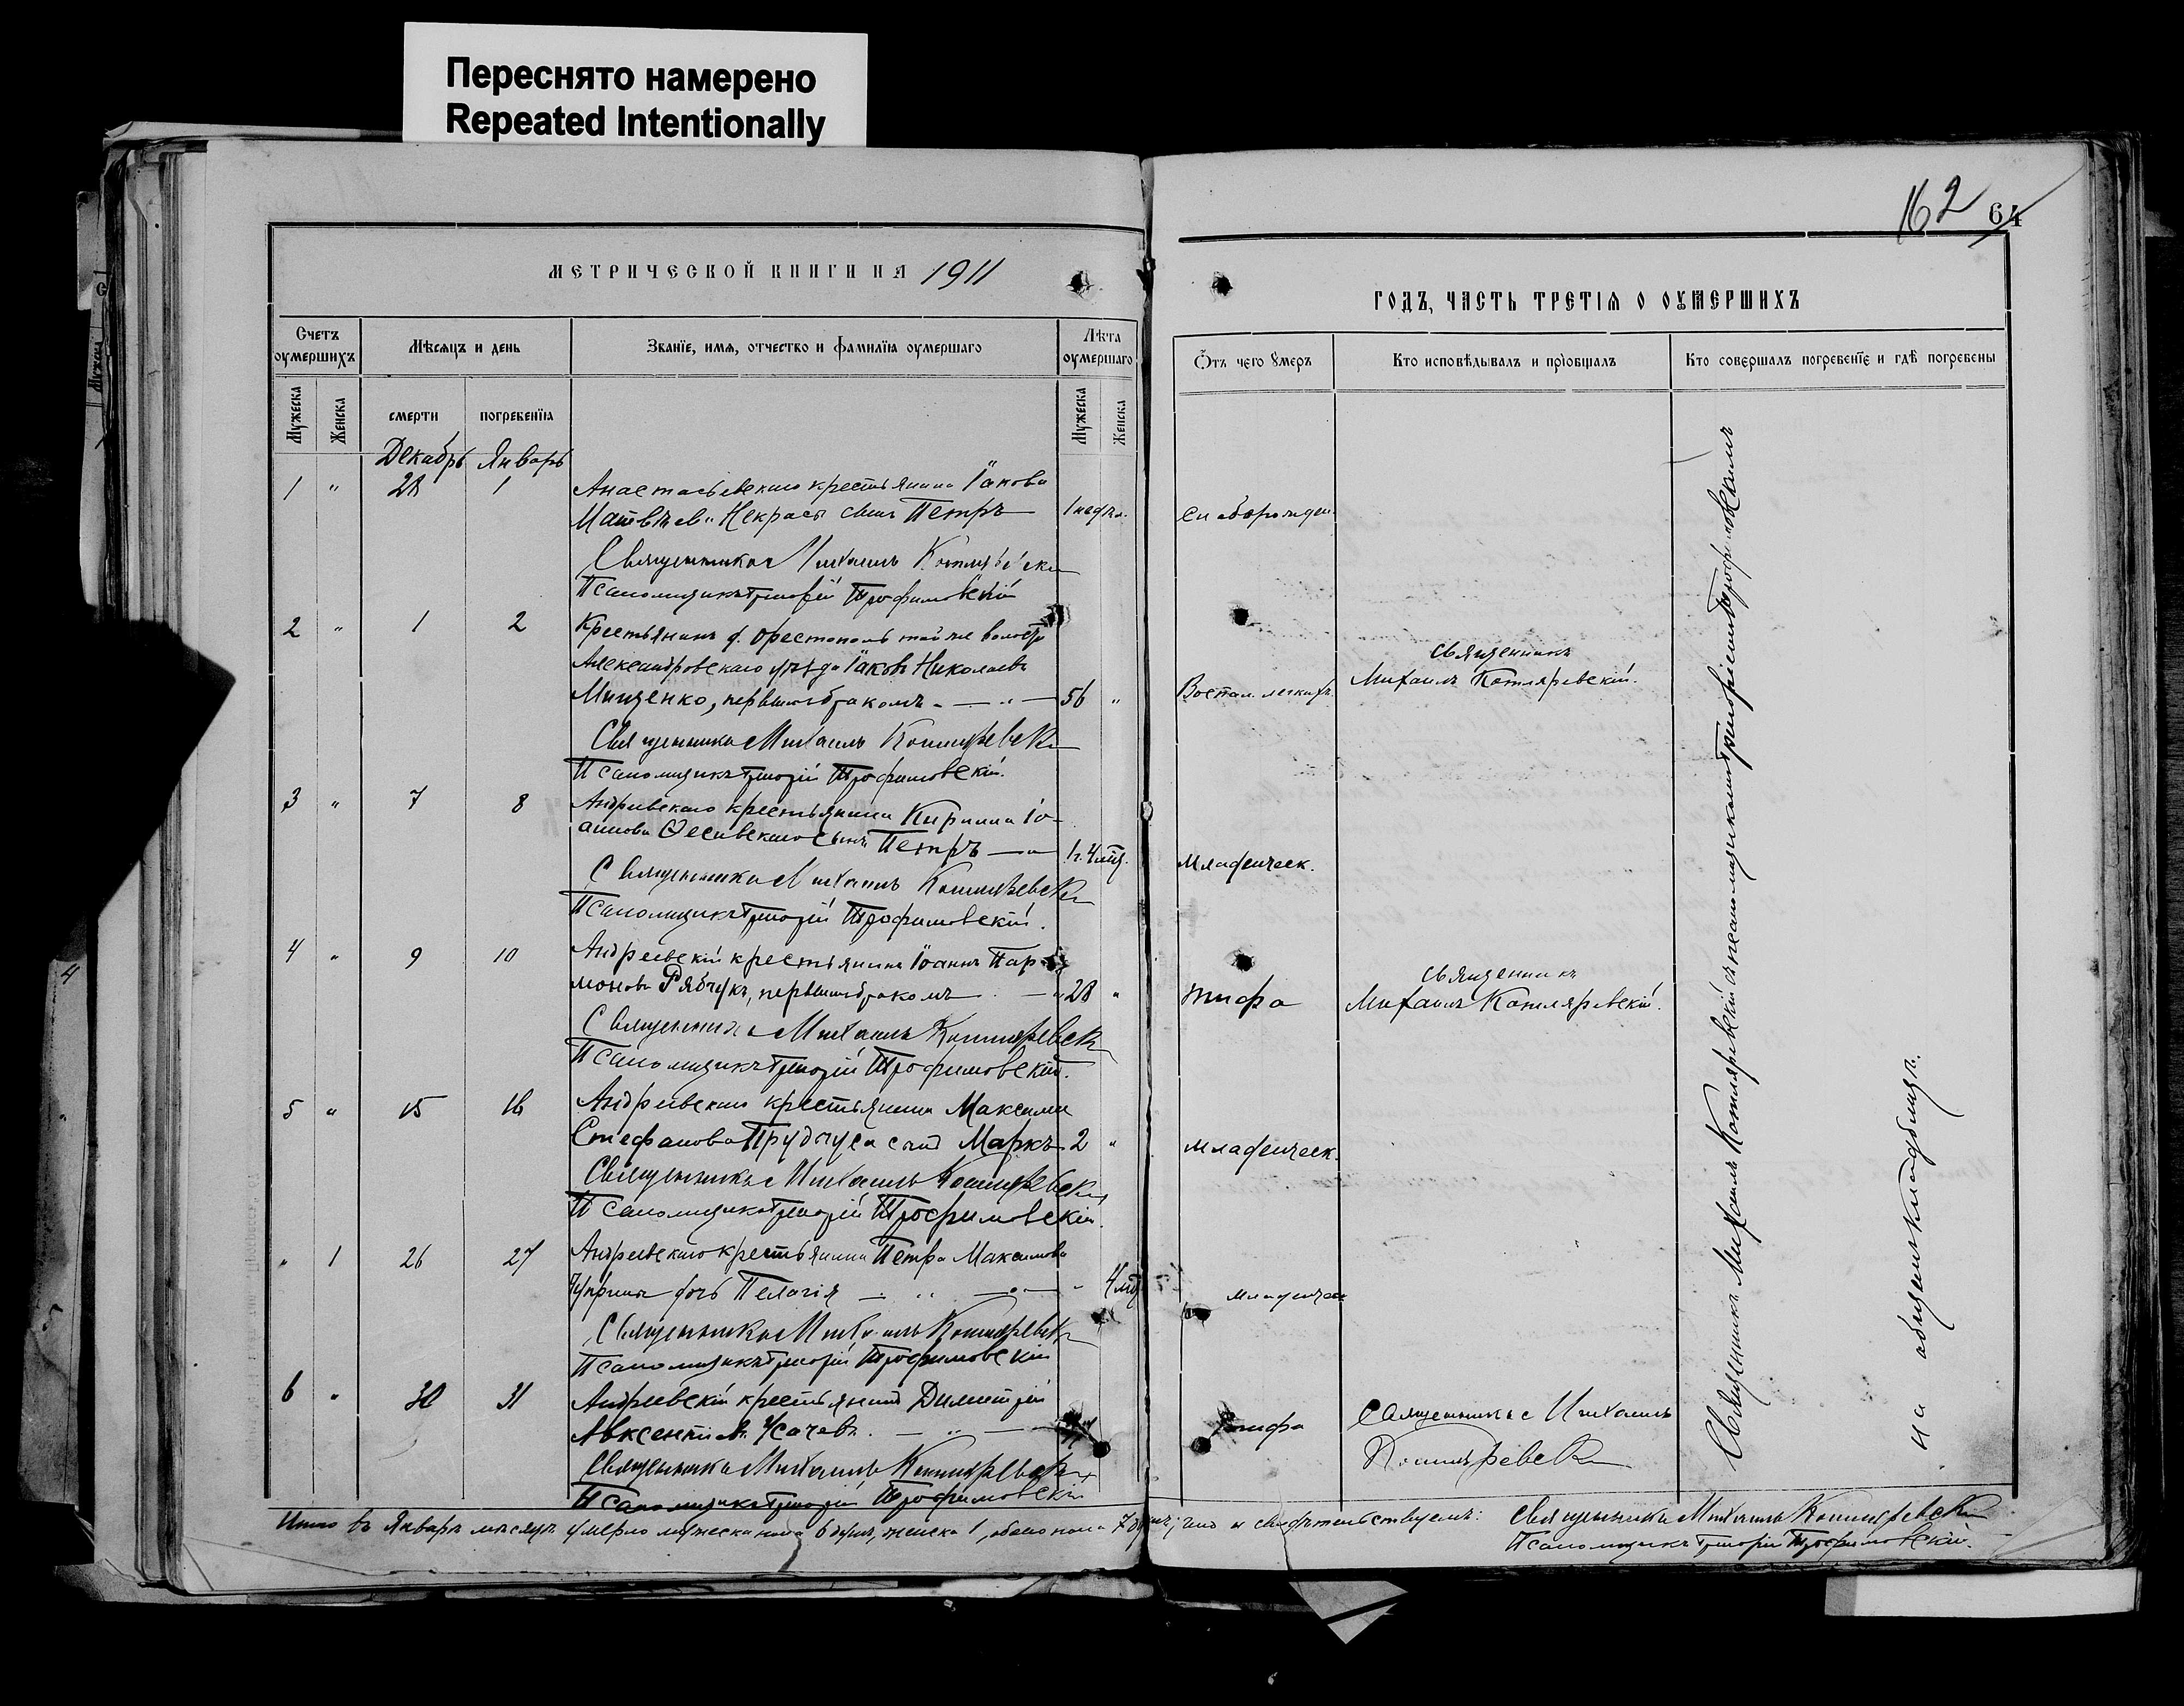 Переснято намерено
Repeated Intentionally
162 64
МЕТРИЧЕСКОЙ КНИГИ НА 1911
ГОДЪ, ЧАСТЬ ТРЕТІЯ О ОУМЕРШИХЪ
Счетъ оумершихъ
Мѣсяцъ и день
Званіе, имя, отчество и фамилія оумершаго
Лѣта оумершаго
Отъ чего умеръ
Кто исповѣдывалъ и пріобщалъ
Кто совершалъ погребеніе и гдѣ погребены
Мужеска Женска смерти погребенія Мужеска Женска
Декабрь Январь
1 " 28 1 Анастасьевскаго крестьянина Іакова
Матвѣева Некрасы сынъ Петръ 1 недѣл.
Слаборожден.
Священникъ Михаилъ Котляревскій
Псаломщикъ Григорій Трофимовскій
2 " 1 2 Крестьянинъ д. Орестополь той же волости
Александровскаго уѣзда Іаковъ Николаевъ
Мищенко, первымъ бракомъ 56 "
Воспал. легкихъ
Священникъ
Михаилъ Котляревскій.
Священникъ Михаилъ Котляревскій
Псаломщикъ Григорій Трофимовскій.
3 " 7 8 Андреевскаго крестьянина Кирилла Іо-
аннова сынъ Петръ 1 г. 4 мѣс.
Младенческ.
Священникъ Михаилъ Котляревскій
Псаломщикъ Григорій Трофимовскій.
4 " 9 10 Андреевскій крестьянинъ Іоаннъ Пара-
моновъ Рябчукъ, первымъ бракомъ 28 "
тифа
Священникъ
Михаилъ Котляревскій.
Священникъ Михаилъ Котляревскій
Псаломщикъ Григорій Трофимовскій.
5 " 15 16 Андреевскаго крестьянина Максима
Стефанова Прудчуса сынъ Маркъ 2 "
младенческ.
Священникъ Михаилъ Котляревскій
Псаломщикъ Григорій Трофимовскій.
" 1 26 27 Андреевскаго крестьянина Петра Максимова
Чуприны дочь Пелагія " 4 мѣс.
младенческ
Священникъ Михаилъ Котляревскій
Псаломщикъ Григорій Трофимовскій
6 " 30 31 Андреевскій крестьянинъ Димитрій
Авксентіевъ Усачевъ.
тифа
Священникъ Михаилъ
Котляревскій
Священникъ Михаилъ Котляревскій
Псаломщикъ Григорій Трофимовскій
Священникъ Михаилъ Котляревскій съ псаломщикомъ Григоріемъ Трофимовскимъ
на общемъ кладбищѣ.
Итого въ Январѣ мѣсяцѣ умерло мужеска пола 6 душъ, женска 1, обоего пола 7 душъ; что и свидѣтельствуемъ: Священникъ Михаилъ Котляревскій
Псаломщикъ Григорій Трофимовскій.